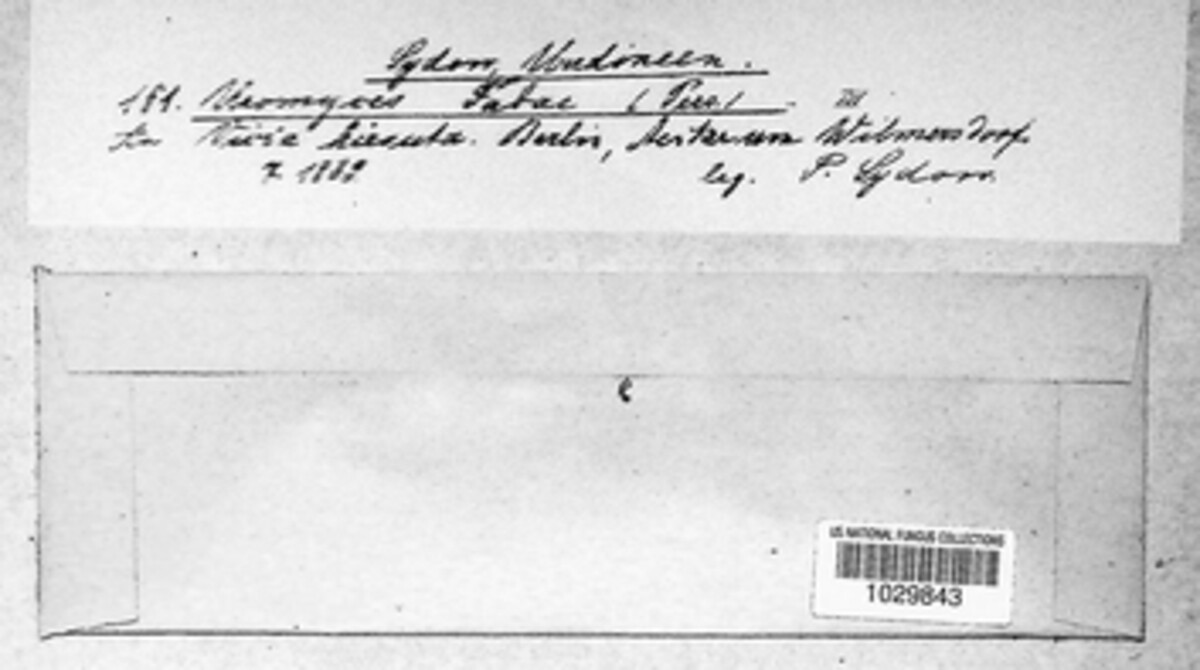 Sydow, Uredineen.
181. Uromyces Fabae (Pers.). III
Vicia hirsuta. Berlin, Wilmersdorf.
7. 1889 leg. P. Sydow.
US NATIONAL FUNGUS COLLECTIONS
1029843